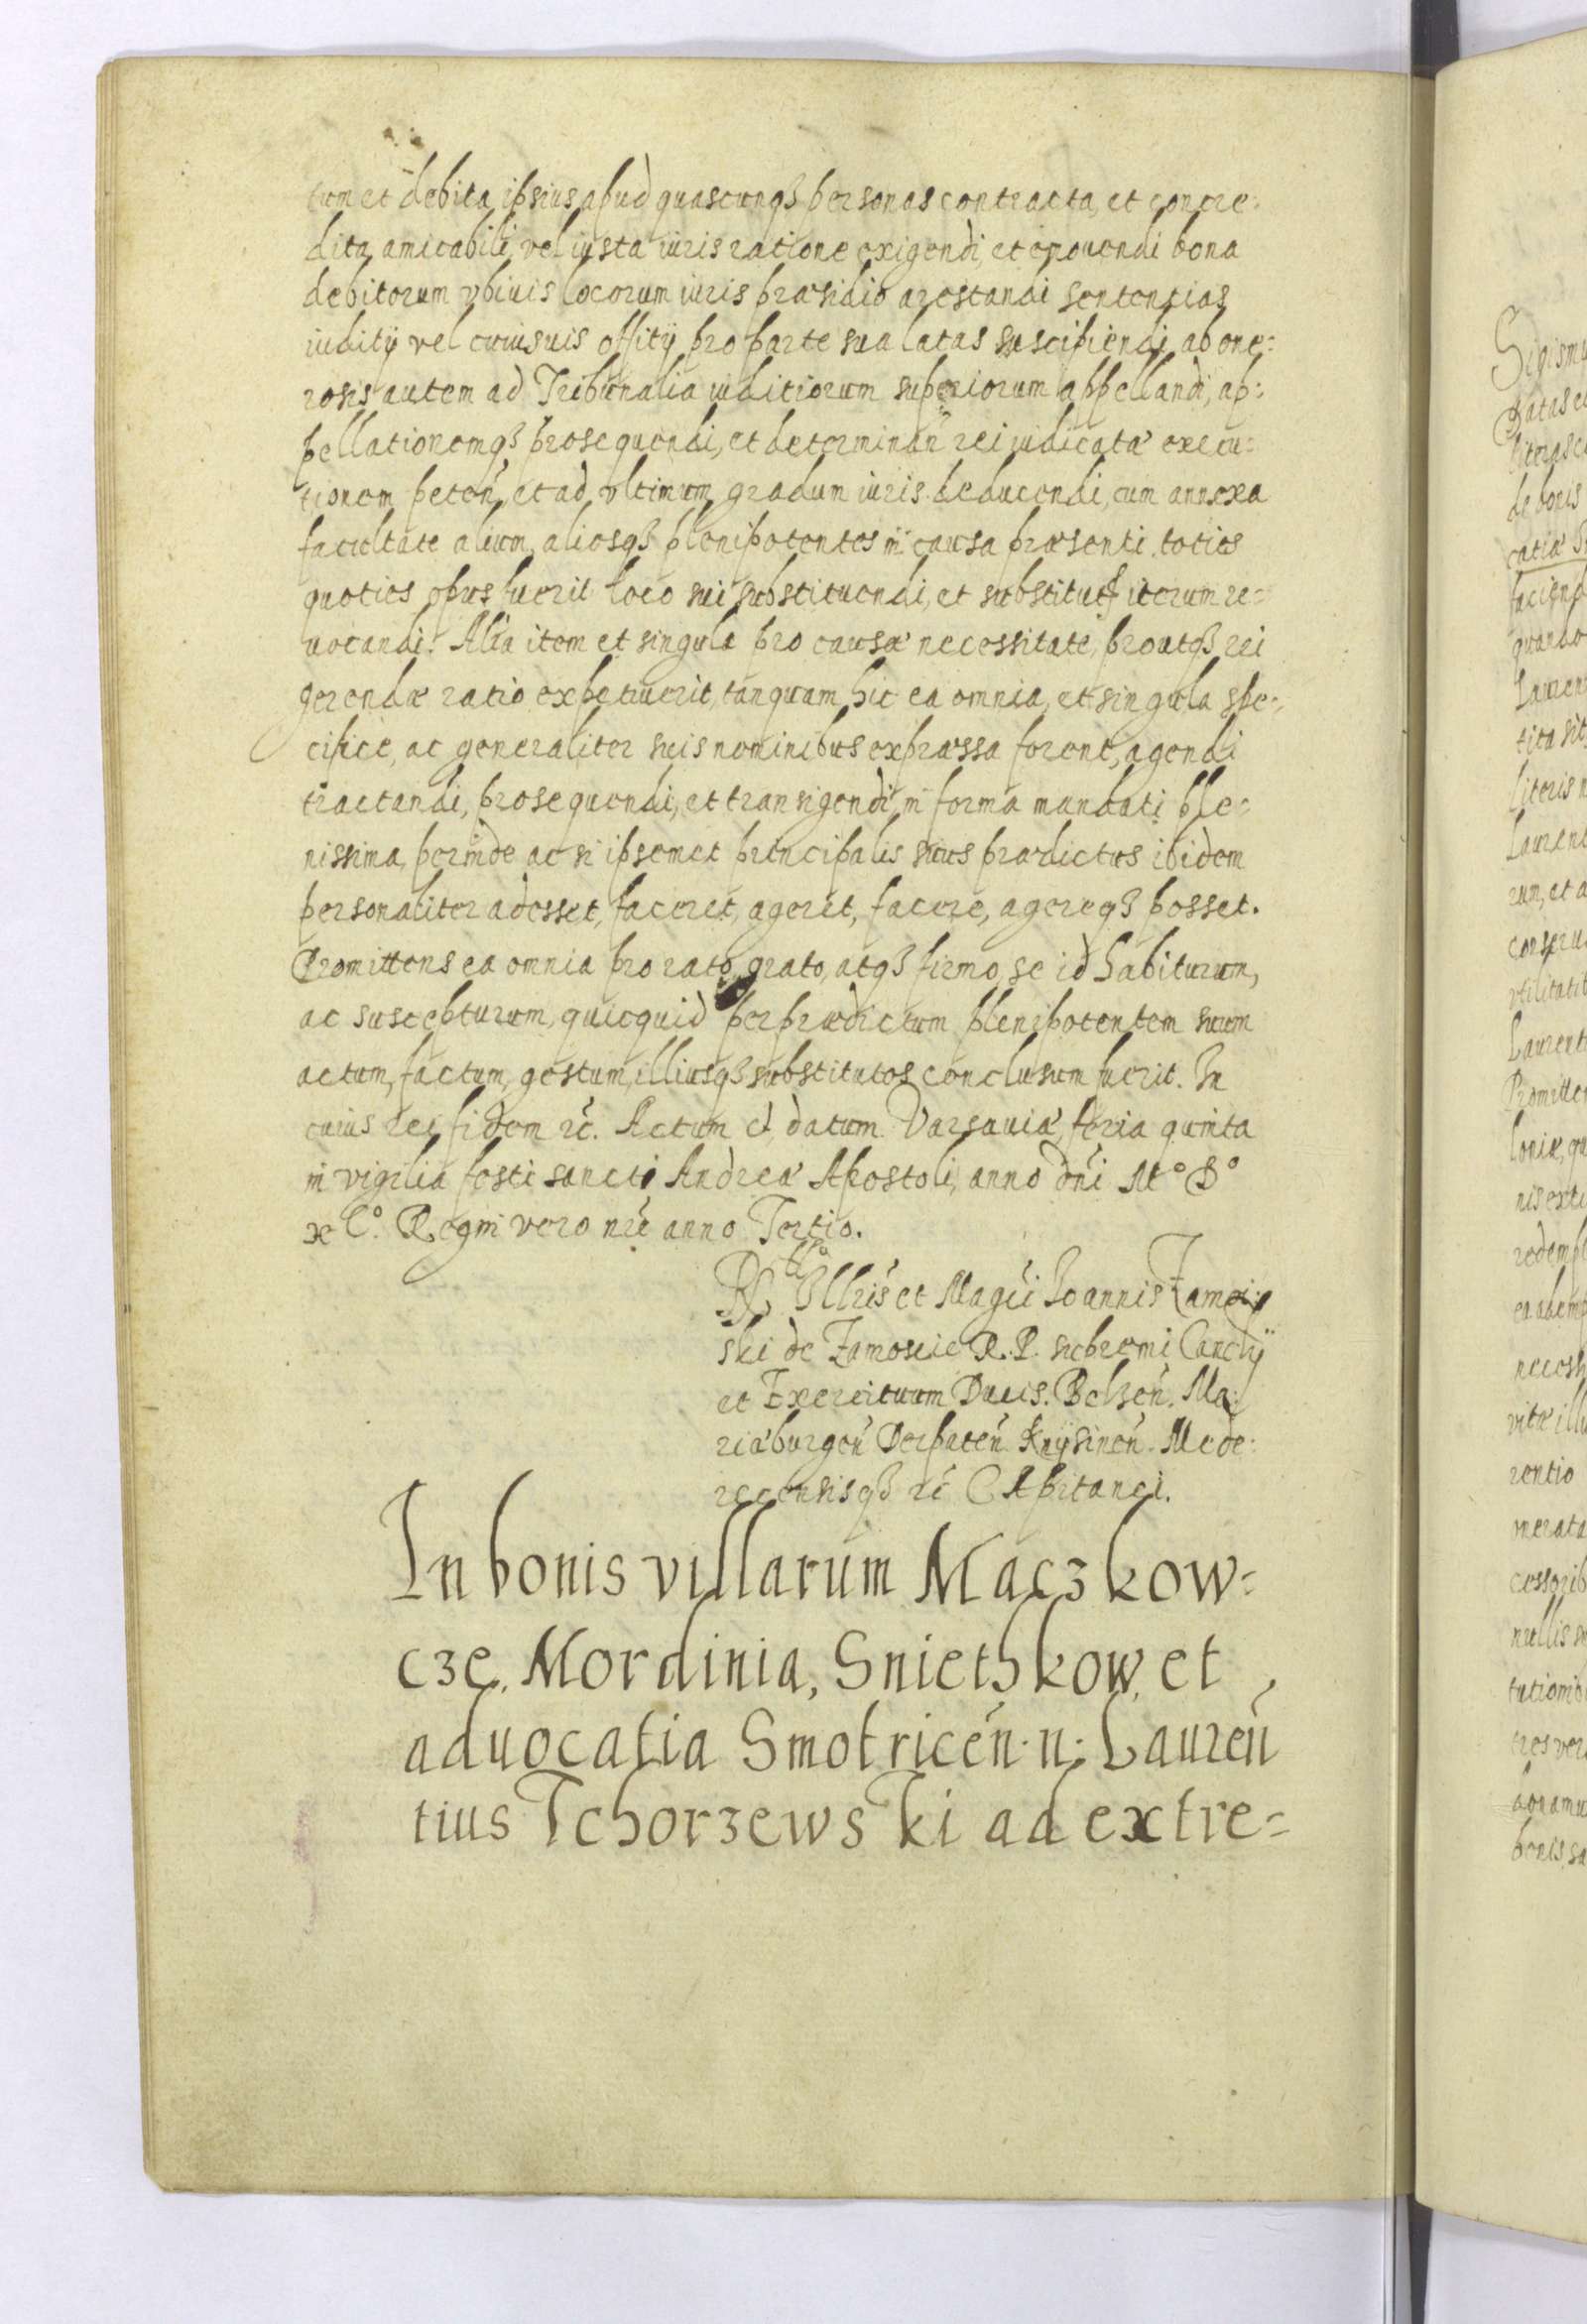 tum et debita ipsius apud quascunq3 personas contracta, et concre-
dita, amicabili, vel iusta iuris ratione exigendi, et eruendi bona
debitorum vbiuis locorum iuris præsidio arestandi sententias
iuditÿ vel cuiusuis offitÿ pro parte sua latas suscipiendi, ab one-
rosis autem ad Tribunalia iuditiorum superiorum appellandi, ap-
pellationemq3 prosequendi, et determinan̄ rei iudicatæ execu-
tionem peten̄, et ad vltimum gradum iuris deducendi, cum annexa
facultate alium, aliosq3 plenipotentes in causa præsenti toties
quoties opus fuerit loco sui substituendi, et substitut iterum re-
uocandi. Alia item et singula pro causæ necessitate, proutq3 rei
gerendæ ratio expetiuerit, tanquam hic ea omnia, et singula spe-
cifice, ac generaliter suis nominibus expræssa forent, agendi
tractandi, prosequendi, et transigendi, in forma mandati ple-
nissima, perinde ac si ipsemet principalis suus prædictus ibidem
personaliter adesset, faceret, ageret, facere, agereq3 posset.
Promittens ea omnia pro rato, grato, atq3 firmo, se id habiturum,
ac suscepturum, quicquid per prædictum plenipotentem suum
actum, factum, gestum, illiusq3 substitutos conclusum fuerit. In
cuius rei fidem rc̄. Actum et datum Varsauiæ, feria quinta
in vigilia festi sancti Andreæ Apostoli, anno dn̄i M° D°
xC°. Regni vero nr̄i anno Tertio.
Rlło Illris̄ et Magc̄i Joannis Zamoi-
ski de Zamoscie R. P. supremi Canclÿ
et Exercituum Ducis. Belzen̄. Ma-
riæburgen̄ Derpaten̄ Knÿsinen̄. Mede-
recensisq3 rc̄ CApitanei.
In bonis villarum Maczkow-
cze, Mordinia, Sniethkow, et
aduocatia Smotricen̄. n. Lauren̄
tius Tchorzewski ad extre-